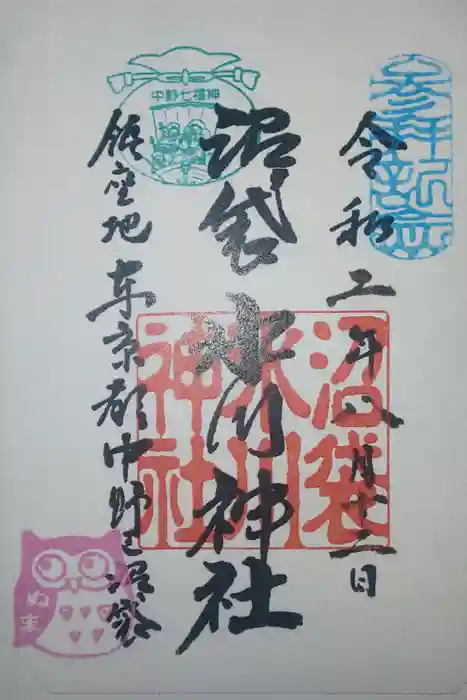 参拝記念
令和二年八月十二日
沼袋氷川神社
中野七福神
鎮座地 東京都中野区沼袋
沼袋
氷川
神社
ぬま